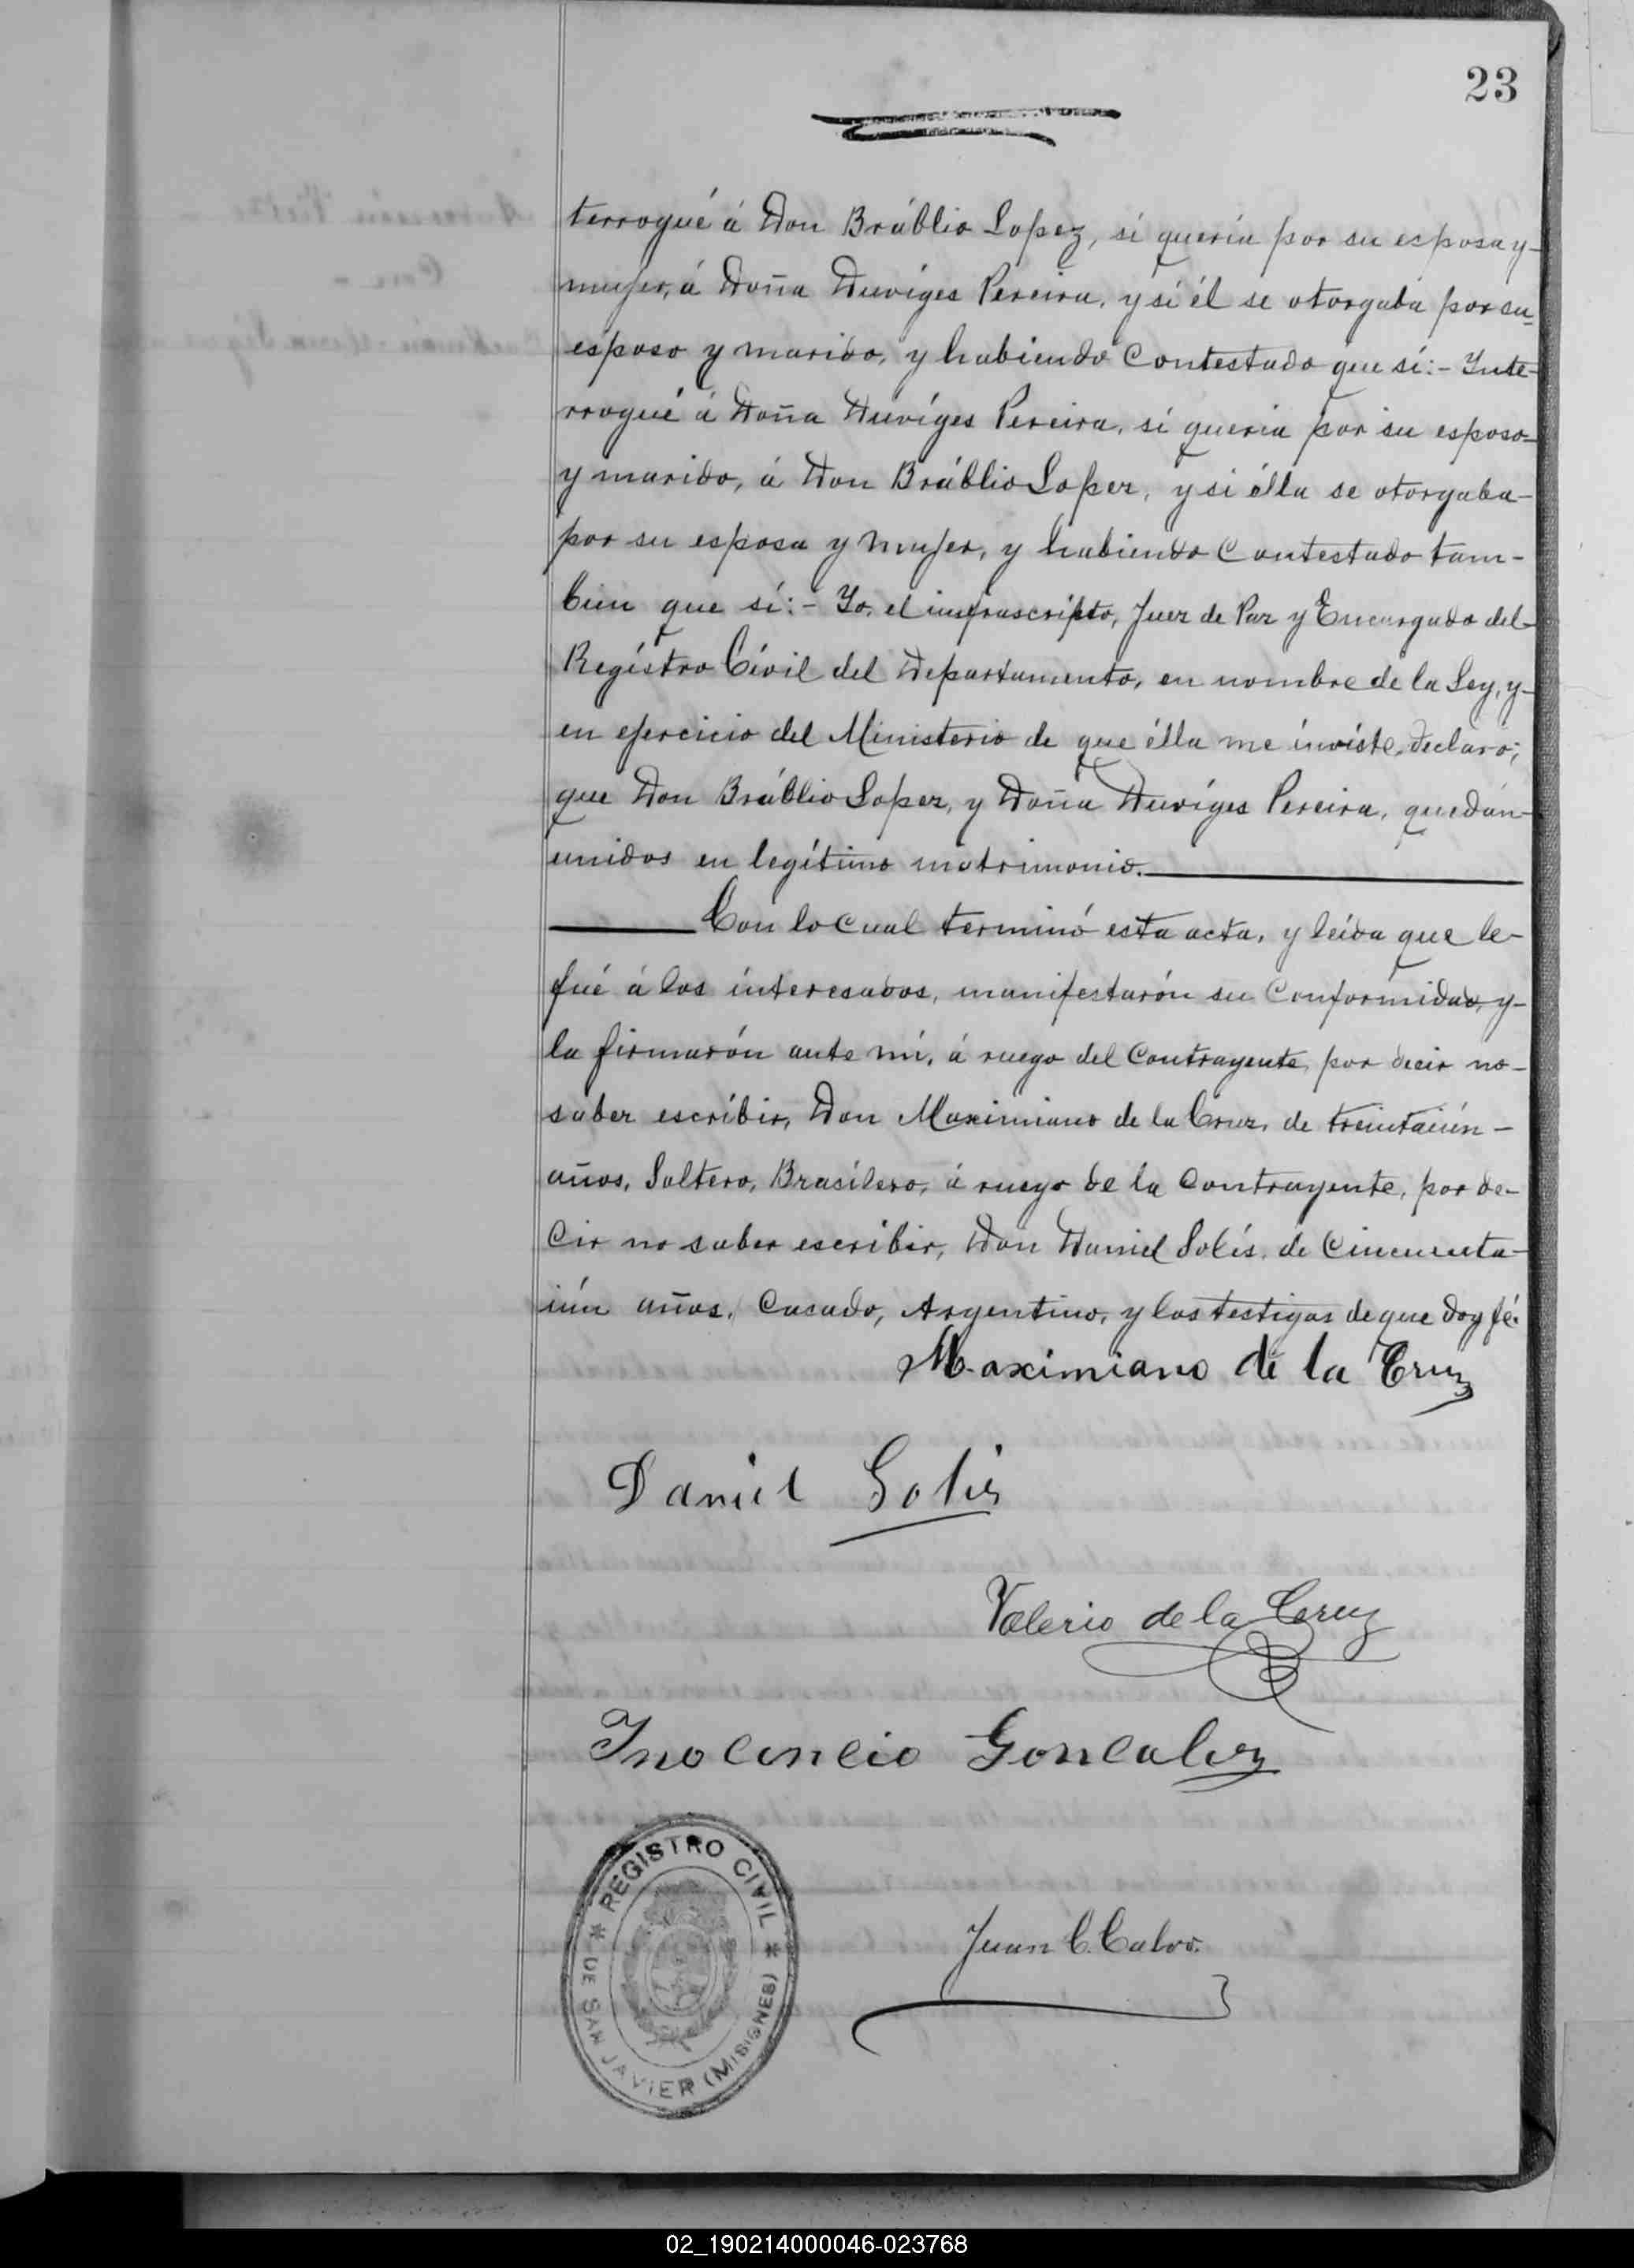 23
terrogué á Don Bráblio Lopez, si quería por su esposa y-
mujer, á Doña Duvíges Pereira, y si él se otorgaba por su-
esposo y marido, y habiendo Contestado que sí:- Inte-
rrogué á Doña Duvíges Pereira, si quería por su esposo-
y marido, á Don Bráblio Lopez, y si élla se otorgaba-
por su esposa y mujer, y habiendo Contestado tam-
bien que sí:- Yo, el infrascripto, Juez de Paz y Encargado del-
Registro Civil del Departamento, en nombre de la Ley, y-
en ejercicio del Ministerio de que élla me invíste, declaro;
que Don Bráblio Lopez, y Doña Duvíges Pereira, quedán-
unidos en legítimo matrimonio.
Con lo Cual terminó esta acta, y leida que le-
fué á los interesados, manifestarón su Conformidad, y-
la firmarón ante mí, á ruego del Contrayente, por decir no-
saber escríbir, Don Maximiano de la Cruz, de treintaiún-
años, Soltero, Brasilero, á ruego de la Contrayente, por de-
Cir no saber escribir, Don Daniel Solís, de Cincuenta-
iún años, Casado, Argentino, y los testigos de que doy fé.
Maximiano de la Cruz
Daniel Solis
Valerio de la Cruz
Inocencio Goncalvez
REGISTRO CIVIL
DE SAN JAVIER (MISIONES)
Juan C. Calvo.
02_190214000046-023768